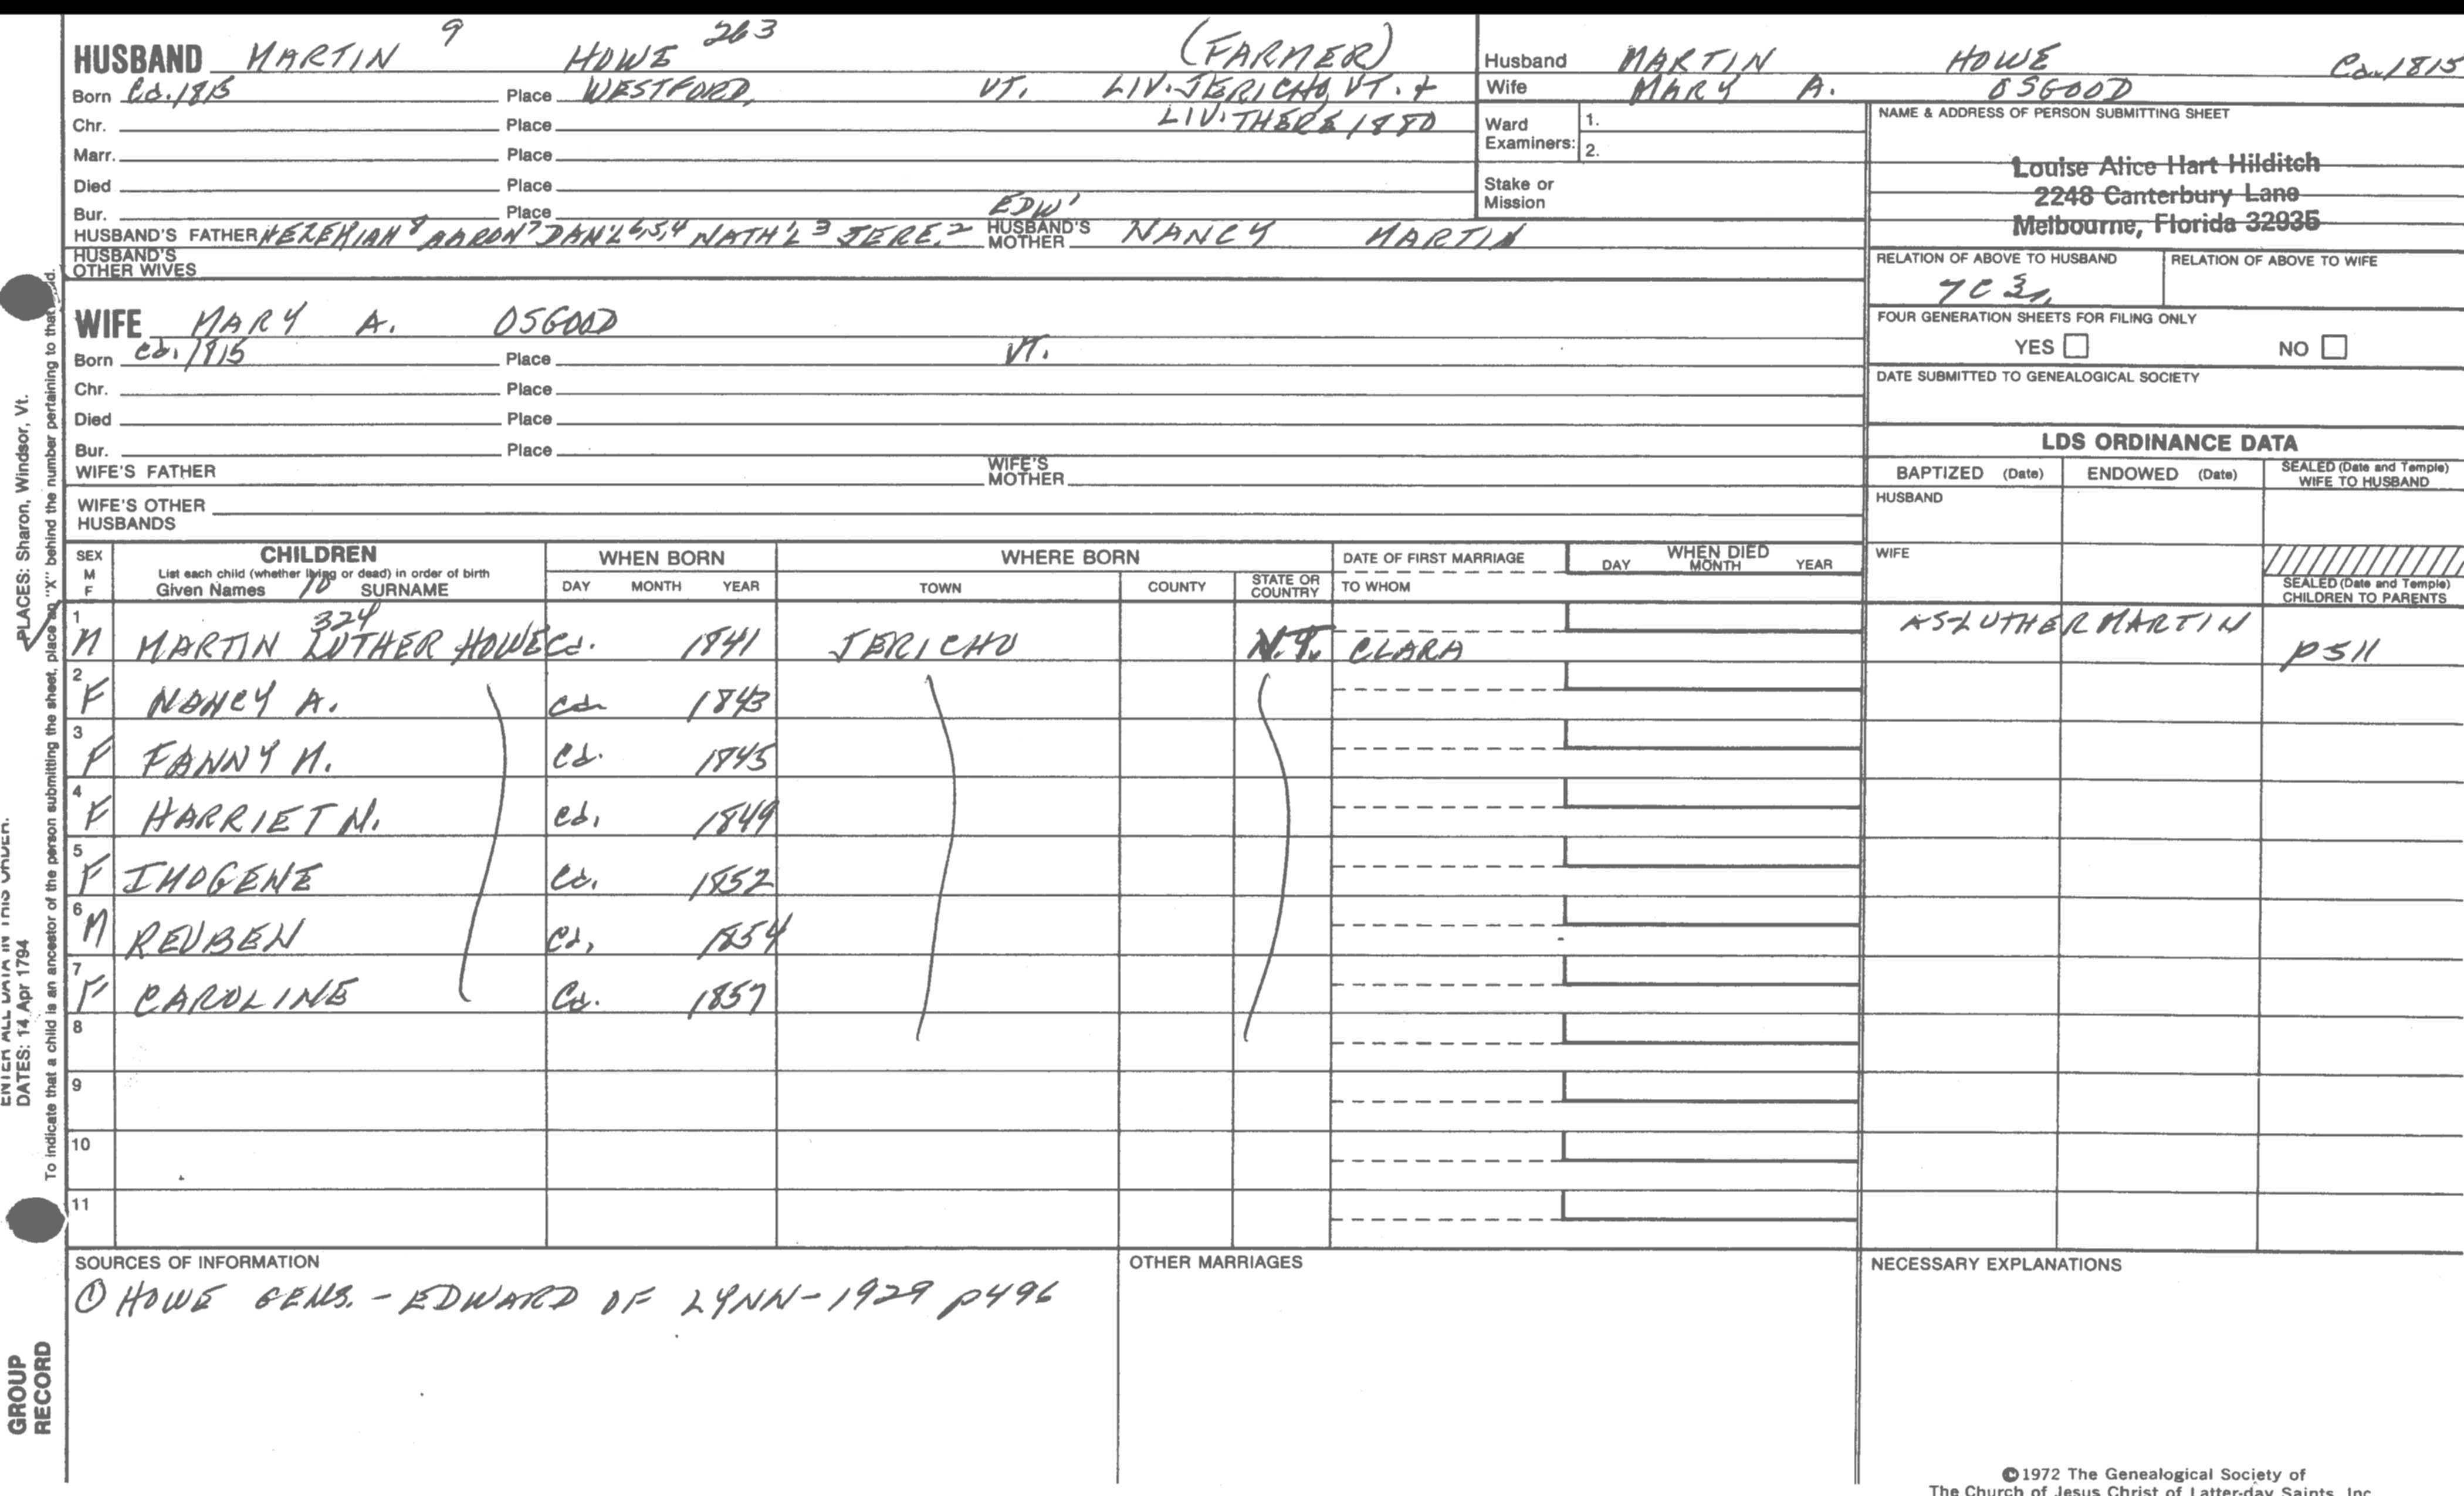 HUSBAND MARTIN 9 HOWE 263 (FARMER)
Born Ca. 1815 Place WESTFORD, VT. LIV. JERICHO, VT. +
Chr. Place LIV. THERE 1880
Marr. Place
Died Place
Bur. Place EDW'
HUSBAND'S FATHER HEZEKIAH 8 AARON 7 DAN'L 6,5,4 NATH'L 3 JERE. 2 HUSBAND'S MOTHER NANCY MARTIN
HUSBAND'S OTHER WIVES
WIFE MARY A. OSGOOD
Born Ca. 1815 Place VT.
Chr. Place
Died Place
Bur. Place
WIFE'S FATHER WIFE'S MOTHER
WIFE'S OTHER HUSBANDS
Husband MARTIN HOWE Ca. 1815
Wife MARY A. OSGOOD
Ward Examiners: 1.
2.
Stake or Mission
NAME & ADDRESS OF PERSON SUBMITTING SHEET
Louise Alice Hart Hilditch
2248 Canterbury Lane
Melbourne, Florida 32935
RELATION OF ABOVE TO HUSBAND RELATION OF ABOVE TO WIFE
7C 3r.
FOUR GENERATION SHEETS FOR FILING ONLY
YES NO
DATE SUBMITTED TO GENEALOGICAL SOCIETY
LDS ORDINANCE DATA
BAPTIZED (Date) ENDOWED (Date) SEALED (Date and Temple) WIFE TO HUSBAND
HUSBAND
WIFE
SEALED (Date and Temple) CHILDREN TO PARENTS
SEX M F CHILDREN WHEN BORN WHERE BORN DATE OF FIRST MARRIAGE WHEN DIED
List each child (whether living or dead) in order of birth
Given Names 10 SURNAME DAY MONTH YEAR TOWN COUNTY STATE OR COUNTRY TO WHOM DAY MONTH YEAR
324
1 M MARTIN LUTHER HOWE Ca. 1841 JERICHO CLARA AS LUTHER MARTIN p511
2 F NANCY A. Ca. 1843
3 F FANNY M. Ca. 1845
4 F HARRIET M. Ca. 1849
5 F IMOGENE Ca. 1852
6 M REUBEN Ca. 1854
7 F CAROLINE Ca. 1857
8
9
10
11
SOURCES OF INFORMATION
① HOWE GENS. - EDWARD OF LYNN - 1929 p496
OTHER MARRIAGES
NECESSARY EXPLANATIONS
©1972 The Genealogical Society of
The Church of Jesus Christ of Latter-day Saints, Inc.
PLACES: Sharon, Windsor, Vt.
ENTER ALL DATA IN THIS ORDER:
DATES: 14 Apr 1794
To indicate that a child is an ancestor of the person submitting the sheet, place an "X" behind the number pertaining to that
GROUP
RECORD